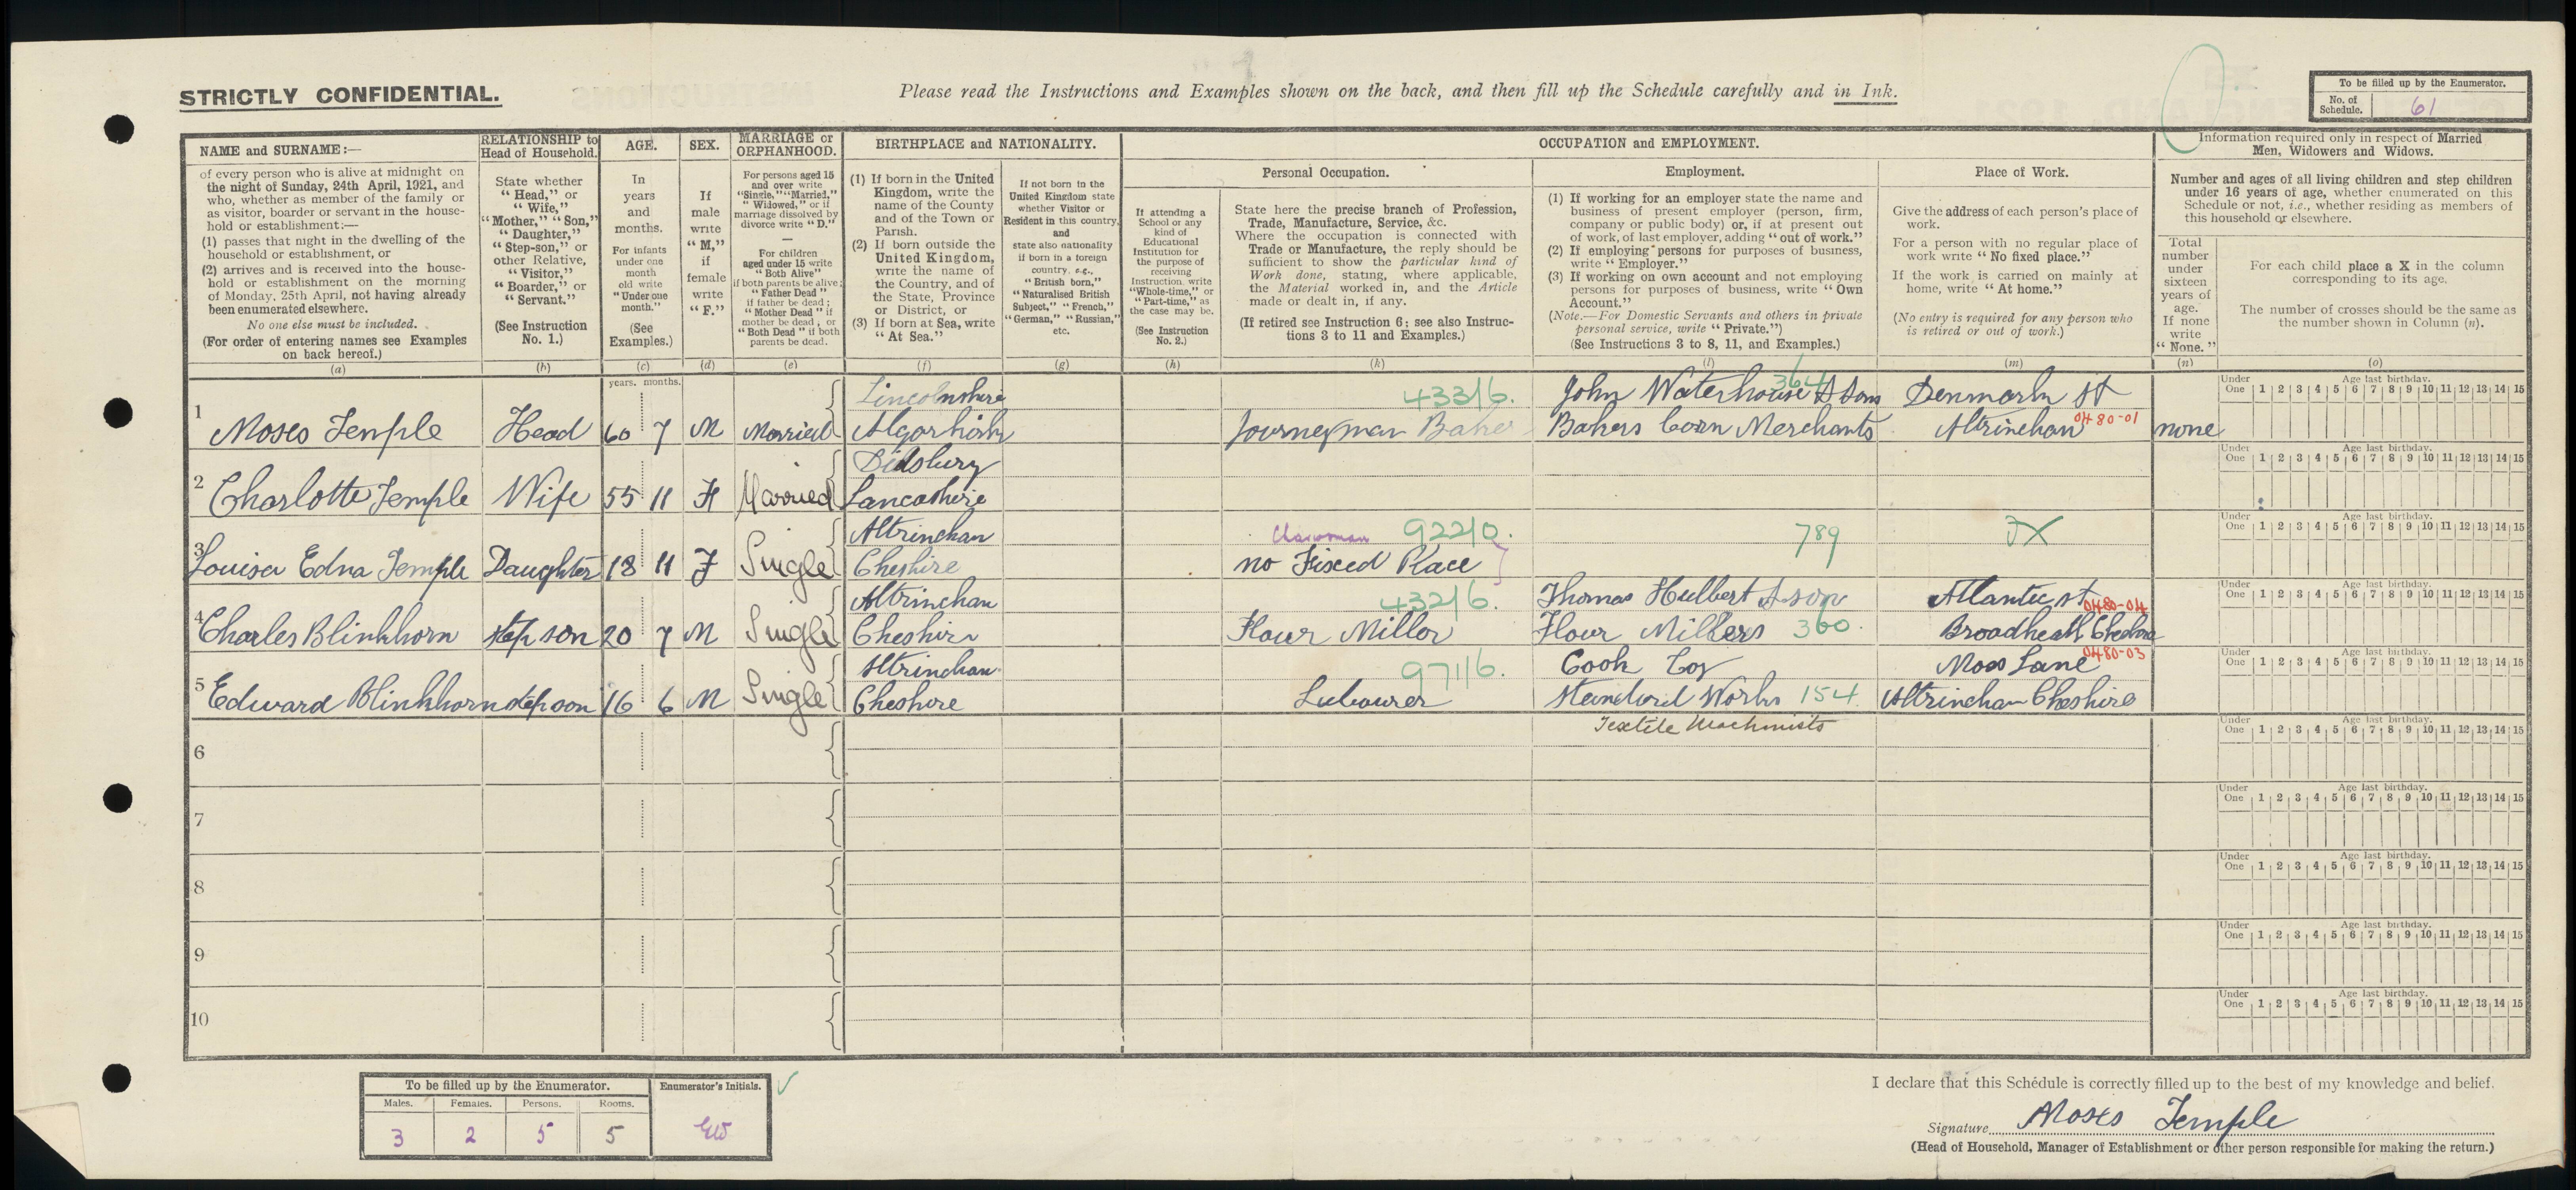 STRICTLY CONFIDENTIAL.
Please read the Instructions and Examples shown on the back, and then fill up the Schedule carefully and in Ink.
To be filled up by the Enumerator.
No. of Schedule. 61
NAME and SURNAME:—
of every person who is alive at midnight on
the night of Sunday, 24th April, 1921, and
who, whether as member of the family or
as visitor, boarder or servant in the house-
hold or establishment:—
(1) passes that night in the dwelling of the
household or establishment, or
(2) arrives and is received into the house-
hold or establishment on the morning
of Monday, 25th April, not having already
been enumerated elsewhere.
No one else must be included.
(For order of entering names see Examples
on back hereof.)
(a)
RELATIONSHIP to
Head of Household.
State whether
"Head," or
"Wife,"
"Mother," "Son,"
"Daughter,"
"Step-son," or
other Relative,
"Visitor,"
"Boarder," or
"Servant."
(See Instruction
No. 1.)
(b)
AGE.
In
years
and
months.
For infants
under one
month
old write
"Under one
month."
(See
Examples.)
(c)
years. months.
SEX.
If
male
write
"M,"
if
female
write
"F."
(d)
MARRIAGE or
ORPHANHOOD.
For persons aged 15
and over write
"Single," "Married,"
"Widowed," or if
marriage dissolved by
divorce write "D."
—
For children
aged under 15 write
"Both Alive"
if both parents be alive;
"Father Dead"
if father be dead;
"Mother Dead" if
mother be dead; or
"Both Dead" if both
parents be dead.
(e)
BIRTHPLACE and NATIONALITY.
(1) If born in the United
Kingdom, write the
name of the County
and of the Town or
Parish.
(2) If born outside the
United Kingdom,
write the name of
the Country, and of
the State, Province
or District, or
(3) If born at Sea, write
"At Sea."
(f)
If not born in the
United Kingdom state
whether Visitor or
Resident in this country,
and
state also nationality
if born in a foreign
country, e.g.,
"British born,"
"Naturalised British
Subject," "French,"
"German," "Russian,"
etc.
(g)
OCCUPATION and EMPLOYMENT.
If attending a
School or any
kind of
Educational
Institution for
the purpose of
receiving
Instruction, write
"Whole-time," or
"Part-time," as
the case may be.
(See Instruction
No. 2.)
(h)
Personal Occupation.
State here the precise branch of Profession,
Trade, Manufacture, Service, &c.
Where the occupation is connected with
Trade or Manufacture, the reply should be
sufficient to show the particular kind of
Work done, stating, where applicable,
the Material worked in, and the Article
made or dealt in, if any.
(If retired see Instruction 6; see also Instruc-
tions 3 to 11 and Examples.)
(k)
Employment.
(1) If working for an employer state the name and
business of present employer (person, firm,
company or public body) or, if at present out
of work, of last employer, adding "out of work."
(2) If employing persons for purposes of business,
write "Employer."
(3) If working on own account and not employing
persons for purposes of business, write "Own
Account."
(Note.—For Domestic Servants and others in private
personal service, write "Private.")
(See Instructions 3 to 8, 11, and Examples.)
(l)
Place of Work.
Give the address of each person's place of
work.
For a person with no regular place of
work write "No fixed place."
If the work is carried on mainly at
home, write "At home."
(No entry is required for any person who
is retired or out of work.)
(m)
Information required only in respect of Married
Men, Widowers and Widows.
Number and ages of all living children and step children
under 16 years of age, whether enumerated on this
Schedule or not, i.e., whether residing as members of
this household or elsewhere.
Total
number
under
sixteen
years of
age.
If none
write
"None."
(n)
For each child place a X in the column
corresponding to its age.
The number of crosses should be the same as
the number shown in Column (n).
(o)
Under One Age last birthday. 1 2 3 4 5 6 7 8 9 10 11 12 13 14 15
Lincolnshire 433/6. 364 John Waterhouse & Sons Denmark st
1 Moses Temple Head 60 7 M Married Algarkirk Journeyman Baker Bakers Corn Merchants Altrinchan 0480-01 none
Under One Age last birthday. 1 2 3 4 5 6 7 8 9 10 11 12 13 14 15
Didsbury
2 Charlotte Temple Wife 55 11 F Married Lancashire
Under One Age last birthday. 1 2 3 4 5 6 7 8 9 10 11 12 13 14 15
Altrinchan 922/0. 789
3 Louisa Edna Temple Daughter 18 11 F Single Cheshire no Fixed Place
Under One Age last birthday. 1 2 3 4 5 6 7 8 9 10 11 12 13 14 15
Altrinchan 432/6. Thomas Hulbert & son Atlantic st 0480-04
4 Charles Blinkhorn step son 20 7 M Single Cheshire Flour Millor Flour Millers 360. Broadheath Cheshire
Under One Age last birthday. 1 2 3 4 5 6 7 8 9 10 11 12 13 14 15
Altrinchan 971/6. Cook Coy Moss Lane 0480-03
5 Edward Blinkhorn step son 16 6 M Single Cheshire Labourer Standard Works 154 Altrinchan Cheshire
Textile Machinists
Under One Age last birthday. 1 2 3 4 5 6 7 8 9 10 11 12 13 14 15
6
Under One Age last birthday. 1 2 3 4 5 6 7 8 9 10 11 12 13 14 15
7
Under One Age last birthday. 1 2 3 4 5 6 7 8 9 10 11 12 13 14 15
8
Under One Age last birthday. 1 2 3 4 5 6 7 8 9 10 11 12 13 14 15
9
Under One Age last birthday. 1 2 3 4 5 6 7 8 9 10 11 12 13 14 15
10
To be filled up by the Enumerator.
Males. Females. Persons. Rooms.
3 2 5 5
Enumerator's Initials.
EW
I declare that this Schedule is correctly filled up to the best of my knowledge and belief.
Signature Moses Temple
(Head of Household, Manager of Establishment or other person responsible for making the return.)